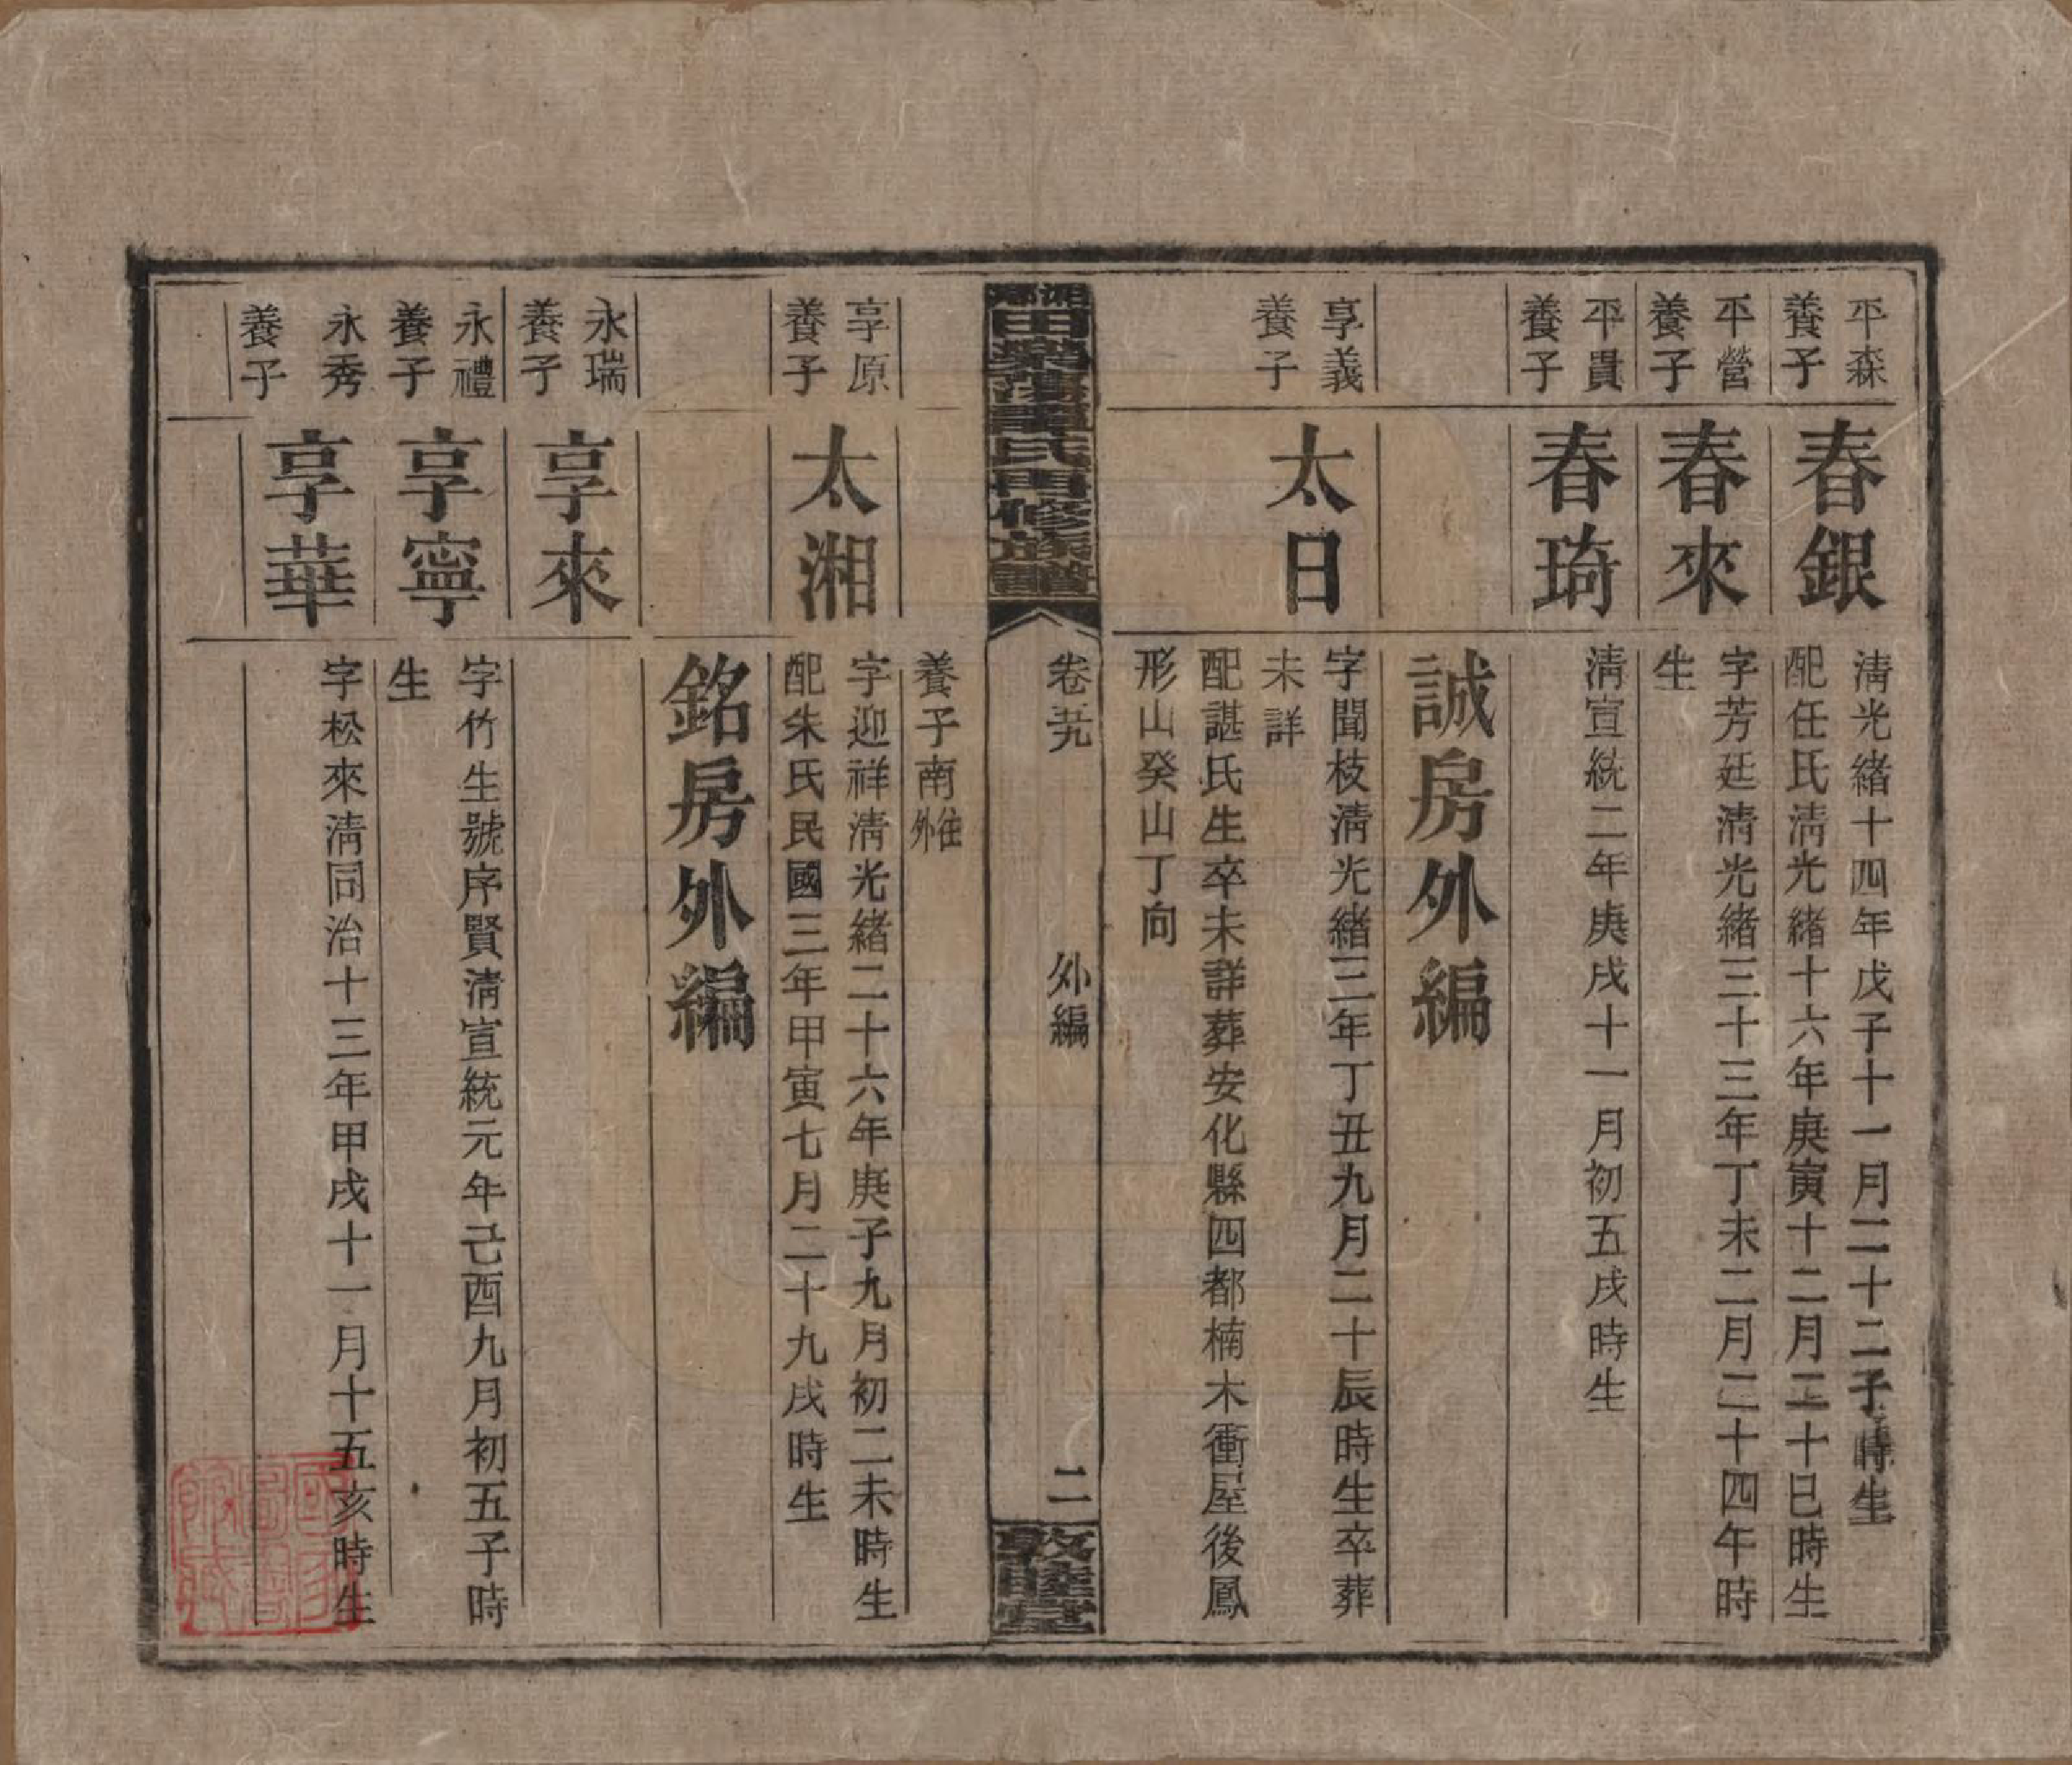 平森
養子
春銀
清光緒十四年戊子十一月二十二子時生
配任氏清光緒十六年庚寅十二月二十巳時生
平營
養子
春來
字芳廷清光緒三十三年丁未二月二十四午時
生
平貴
養子
春琦
清宣統二年庚戌十一月初五戌時生
誠房外編
享義
養子
太日
字聞枝清光緒三年丁丑九月二十辰時生卒葬
未詳
配諶氏生卒未詳葬安化縣四都楠木衝屋後鳳
形山癸山丁向
湘鄉田樂蕩譚氏四修族譜
卷尾
外編
二
敦睦堂
養子南
外
享原
養子
太湘
字迎祥清光緒二十六年庚子九月初二未時生
配朱氏民國三年甲寅七月二十九戌時生
銘房外編
永瑞
養子
享來
永禮
養子
享寧
字竹生號序賢清宣統元年己酉九月初五子時
生
永秀
養子
享華
字松來清同治十三年甲戌十一月十五亥時生